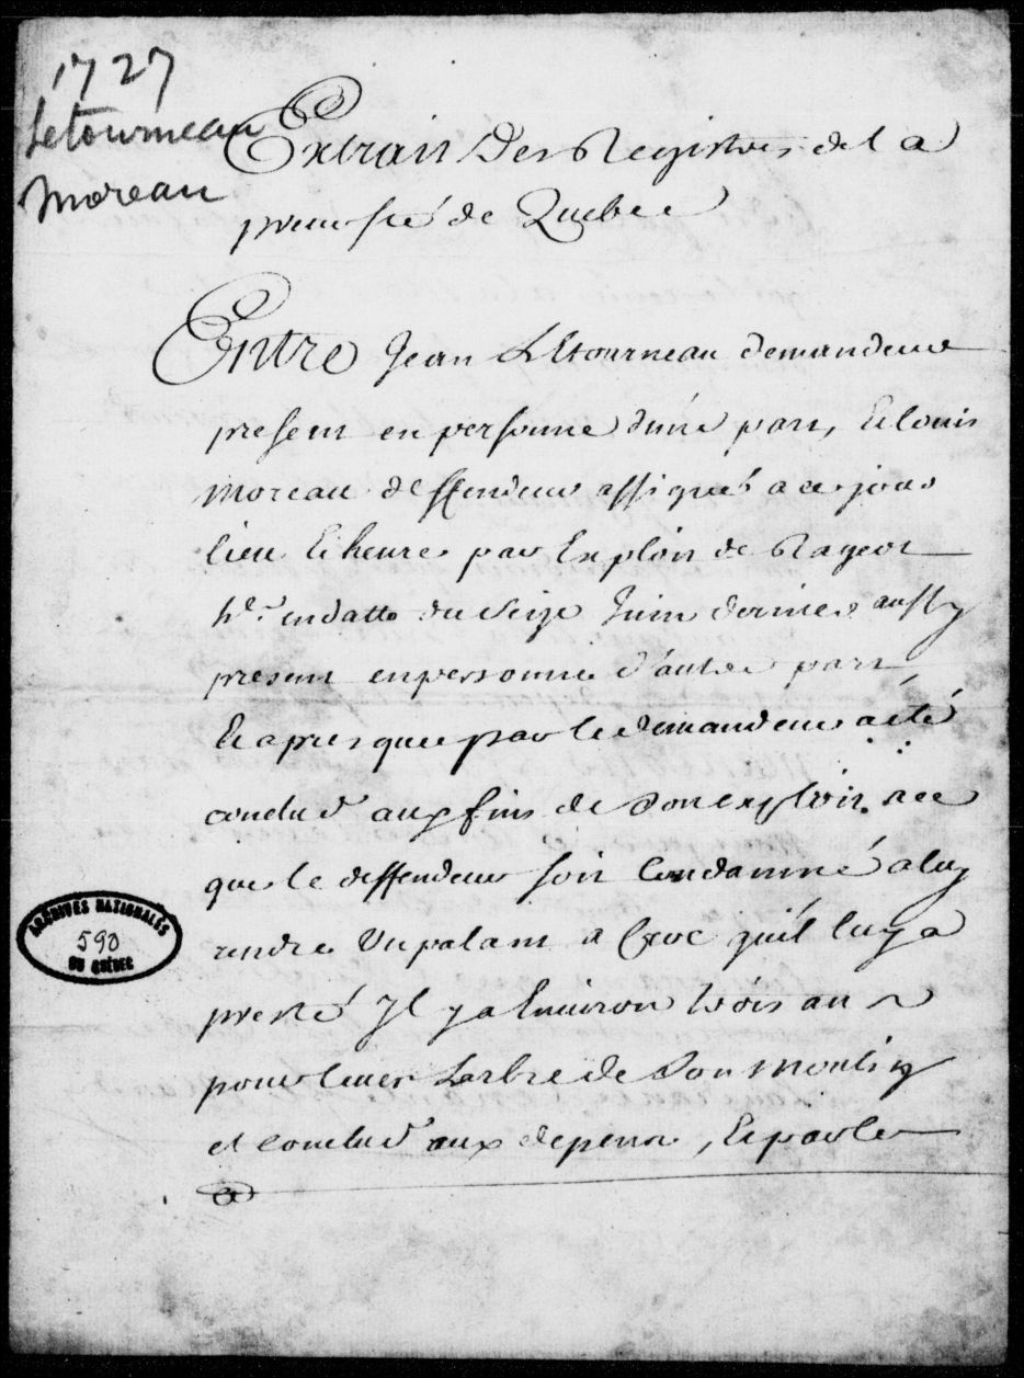 1727
Letourneau
Moreau
Extrait Des Registres de la
prevosté de Quebec
Entre Jean LEtourneau demandeur
present en personne d'une part, Et Louis
Moreau deffendeur assigné a ce jour
lieu Et heure par Exploit de Rageot
hr. en datte du Seize Juin dernier aussy
present en personne d'autre part,
Et apres que par le demandeur a eté
conclud aux fins de son exploit a ce
que le deffendeur soit Condamné a luy
rendre Un palant a Croc qu'il luy a
presté Jl y a Environ trois ans
pour lever Larbre de son moulin
et conclud aux depens, Et par le
ARCHIVES NATIONALES
590
DU QUÉBEC